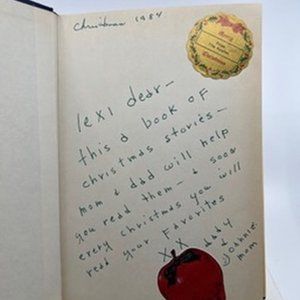 Christmas 1984
Merry
Christmas
lexi dear—
this a book of
christmas stories—
mom & dad will help
you read them— & soon
every christmas you will
read your favorites
XX dady
&
Joannie
mom